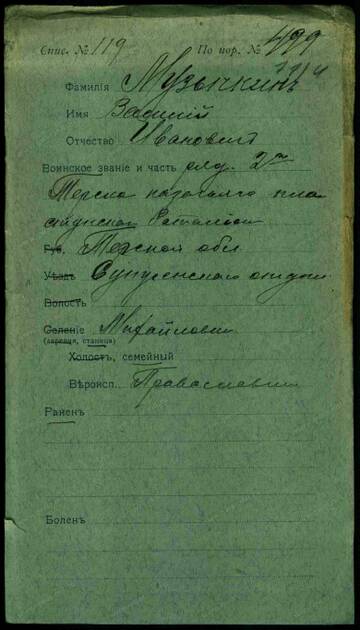 Спис. № 119 По пор. № 499
1914
Фамилія Музычкинъ
Имя Василій
Отчество Ивановичъ
Воинское званіе и часть ряд. 2го
Терско казачьяго пла
стунскаго баталіона
Губ. Терской обл
Уѣздъ Сунженскаго отдѣла
Волость
Селеніе Михайловск
(деревня, станица)
Холостъ, семейный
Вѣроисп. Православн
Раненъ
Боленъ